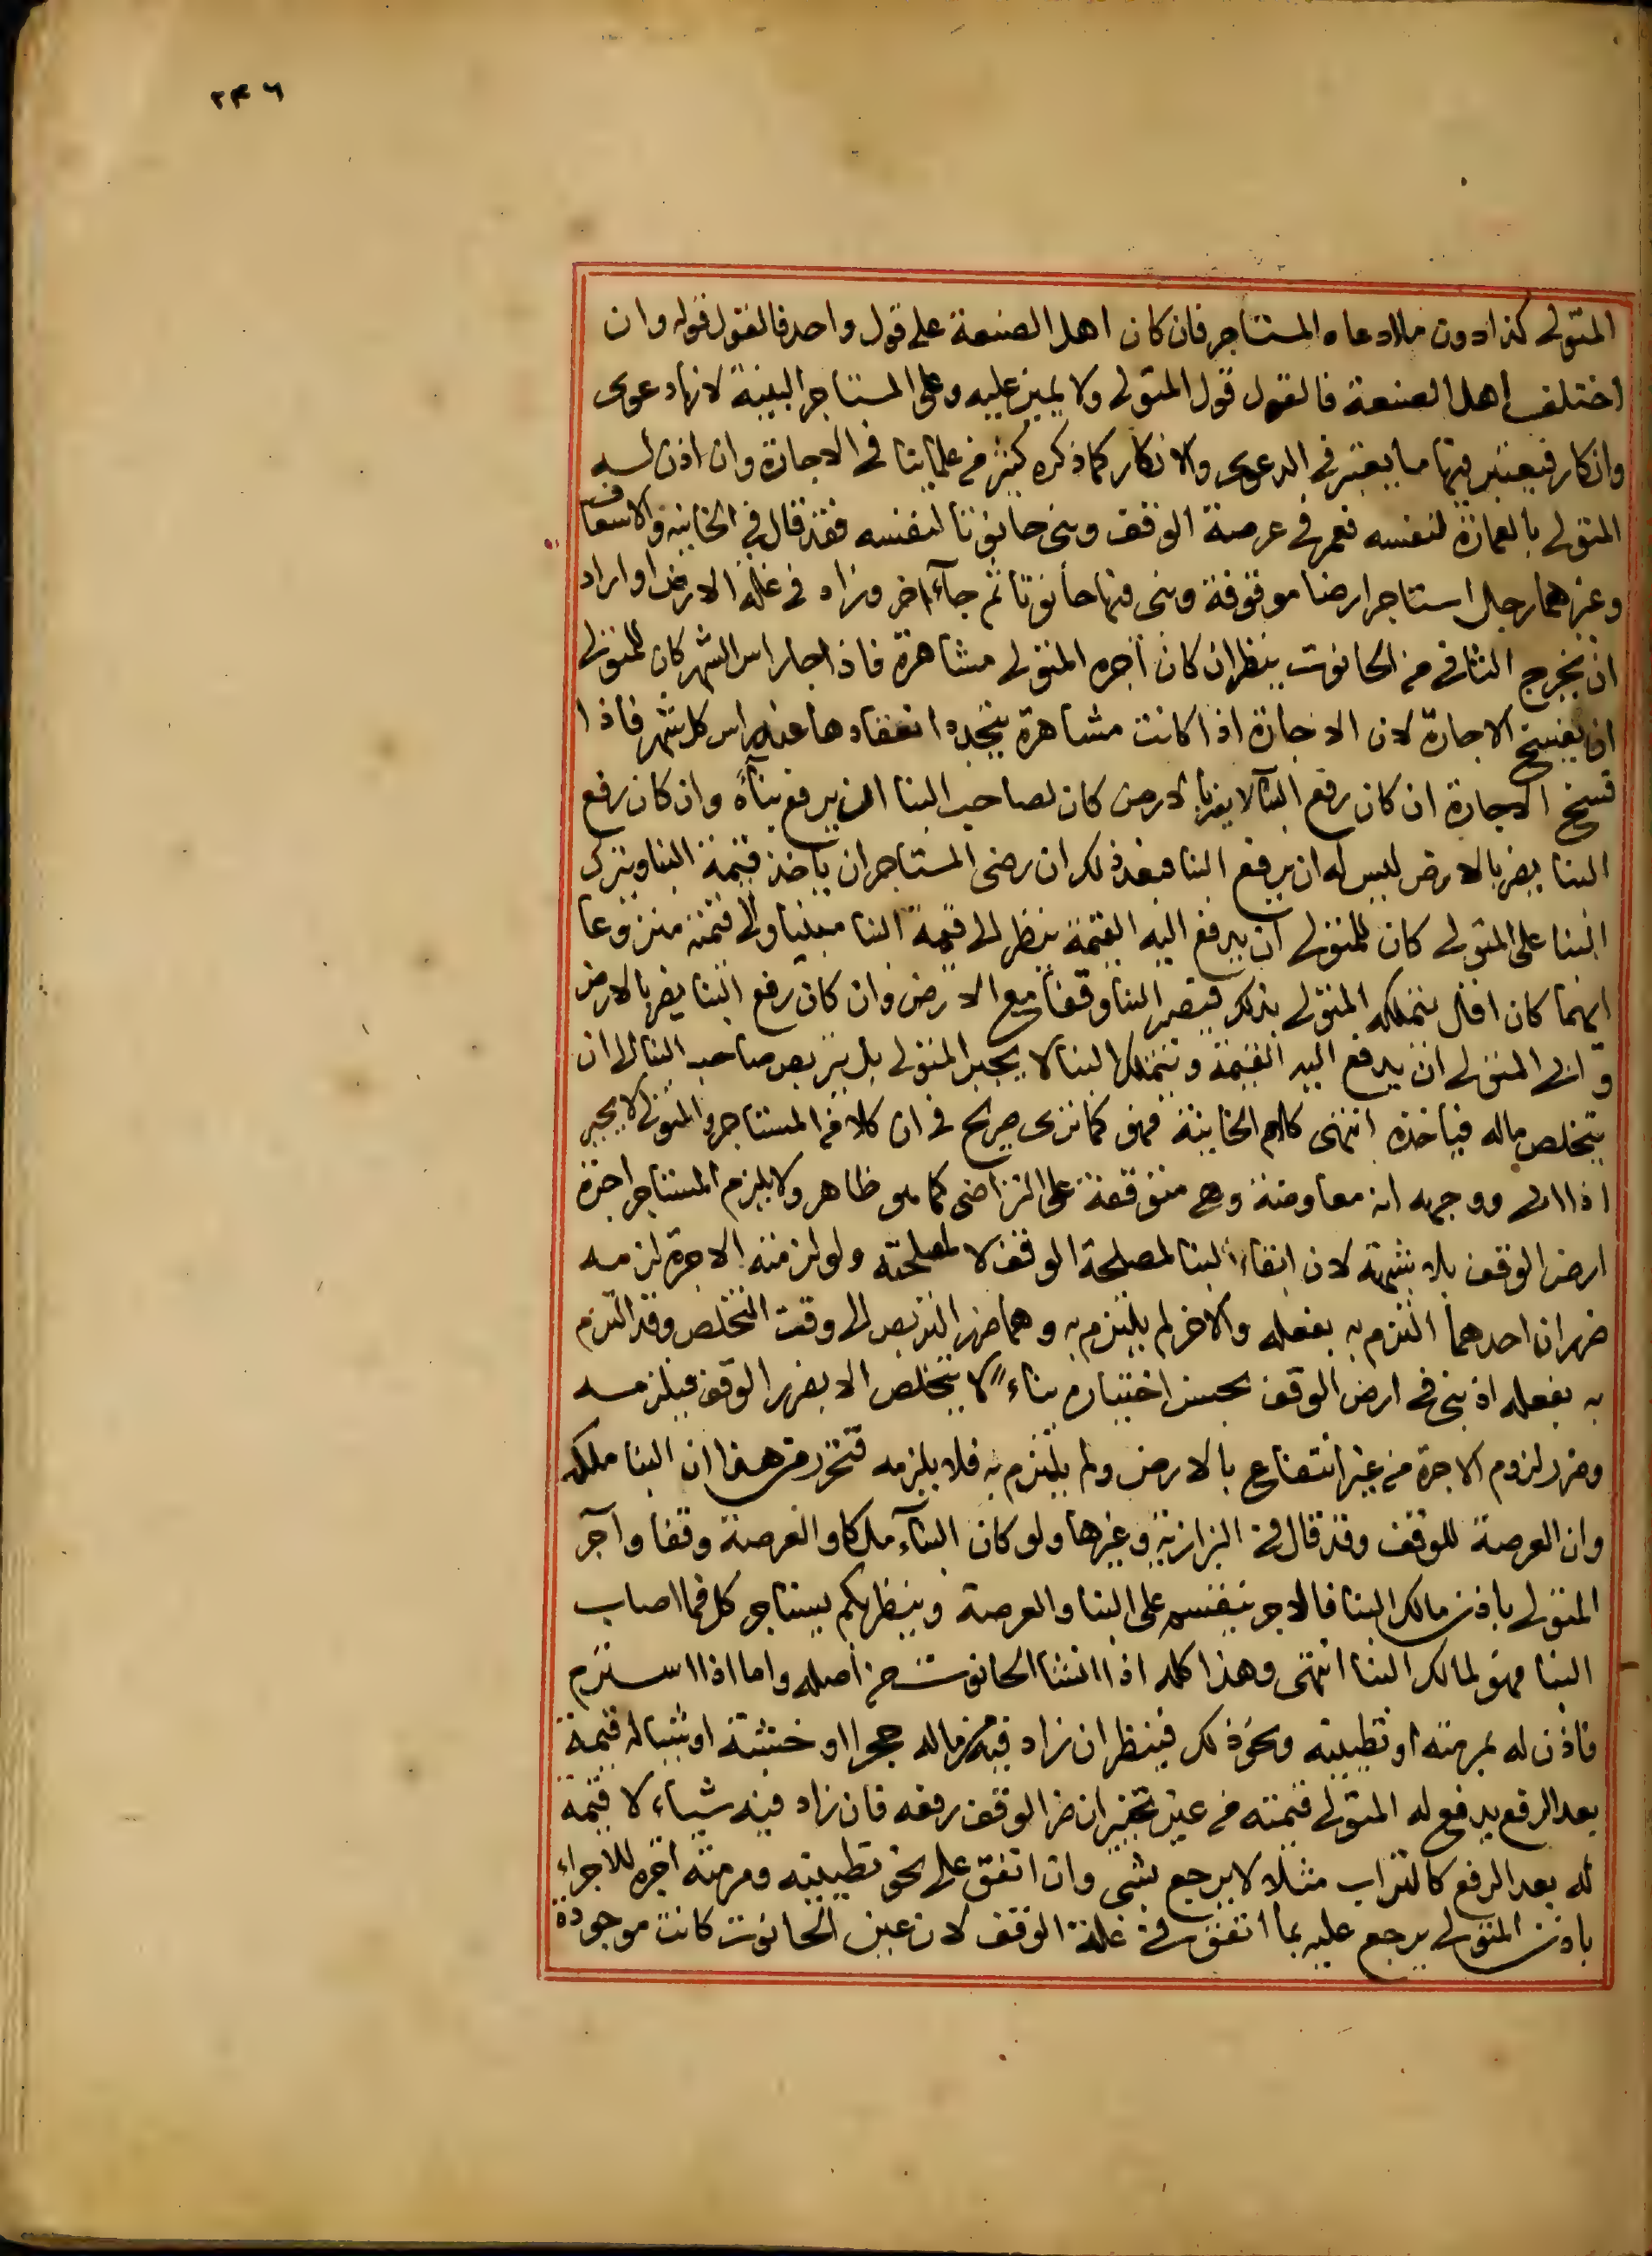 ٢٤٦
المتولى كذا دون ما ادعاه المستاجر فان كان اهل الصنعة على قول واحد فالقول قوله وان
اختلف اهل الصنعة فالقول قول المتولى ولا يمين عليه وعلى المستاجر البينة لانها دعوى
وانكار فيعتبر فيها ما يعتبر في الدعوى والانكار كما ذكره كثير من علمائنا في الاجارة وان اذن له
المتولى بالعمارة لنفسه فعمر في عرصة الوقف وبنى حانوتا لنفسه فقد قال في الخانيه والاسعاف
وغيرهما رجل استاجر ارضا موقوفة وبنى فيها حانوتا ثم جآء اخر وزاد في غلة الارض واراد
ان يخرج الثاني من الحانوت ينظر ان كان اجره المتولى مشاهرة فاذا جا راس الشهر كان للمتولى
ان يفسخ الاجارة لان الاجارة اذا كانت مشاهرة يتجدد انعقادها عند راس كل شهر فاذا
فسخ الاجارة ان كان رفع البنآ لا يضر بالارض كان لصاحب البنا ان يرفع بنآءه وان كان رفع
البنا يضر بالارض ليس له ان يرفع البنا فبعد ذلك ان رضى المستاجر ان ياخذ قيمة البنا ويترك
البنا على المتولى كان للمتولى ان يدفع اليه القيمة ينظر الى قيمة البنا مبنيا والى قيمته منزوعا
ايهما كان اقل يتملكه المتولى بذلك فيصير البنا وقفا مع الارض وان كان رفع البنا يضر بالارض
وابى المتولى ان يدفع اليه القيمة ويتملك البنا لا يجبر المتولى بل يتربص صاحب البنا الى ان
يتخلص ماله فياخذه انتهى كلام الخانية فهو كما ترى صريح في ان كلا من المستاجر والمتولى لا يجبر
اذا ابى ووجهه انه معاوضة وهي متوقفة على التراضى كما هو ظاهر ولا يلزم المستاجر اجرة
ارض الوقف بلا شبهة لان ابقاء البنا لمصلحة الوقف لا لمصلحته ولو لزمته الاجرة لزمه
ضرران احدهما التزم به بفعله والاخر لم يلتزم به وهما ضرر التربص الى وقت التخلص وقد التزم
به بفعله اذ بنى في ارض الوقف بحسن اختياره بناء لا يتخلص الا بضرر الوقف فيلزمه
وضرر لزوم الاجرة من غير انتفاع بالارض ولم يلتزم به فلا يلزمه فتحرر من هذا ان البنا ملكه
وان العرصة للوقف وقد قال في البزازية وغيرها ولو كان البنآء ملكا والعرصة وقفا وآجر
المتولى باذن مالك البنا فالاجر ينقسم على البنا والعرصة وينظر بكم يستاجر كل فما اصاب
البنا فهو لمالك البنا انتهى وهذا كله اذا انشا الحانوت من اصله واما اذا استرم
فاذن له بمرمته او تطيينه ونحو ذلك فينظر ان زاد فيه من ماله حجرا او خشبة او شيا له قيمة
بعد الرفع يدفع له المتولى قيمته من غير تخيير ان ضر الوقف رفعه فان زاد فيه شياء لا قيمة
له بعد الرفع كالتراب مثلا لا يرجع بشى وان انفق على نحو تطيينه ومرمته اجره للاجراء
باذن المتولى يرجع عليه بما انفق في غلة الوقف لان عين الحانوت كانت موجودة